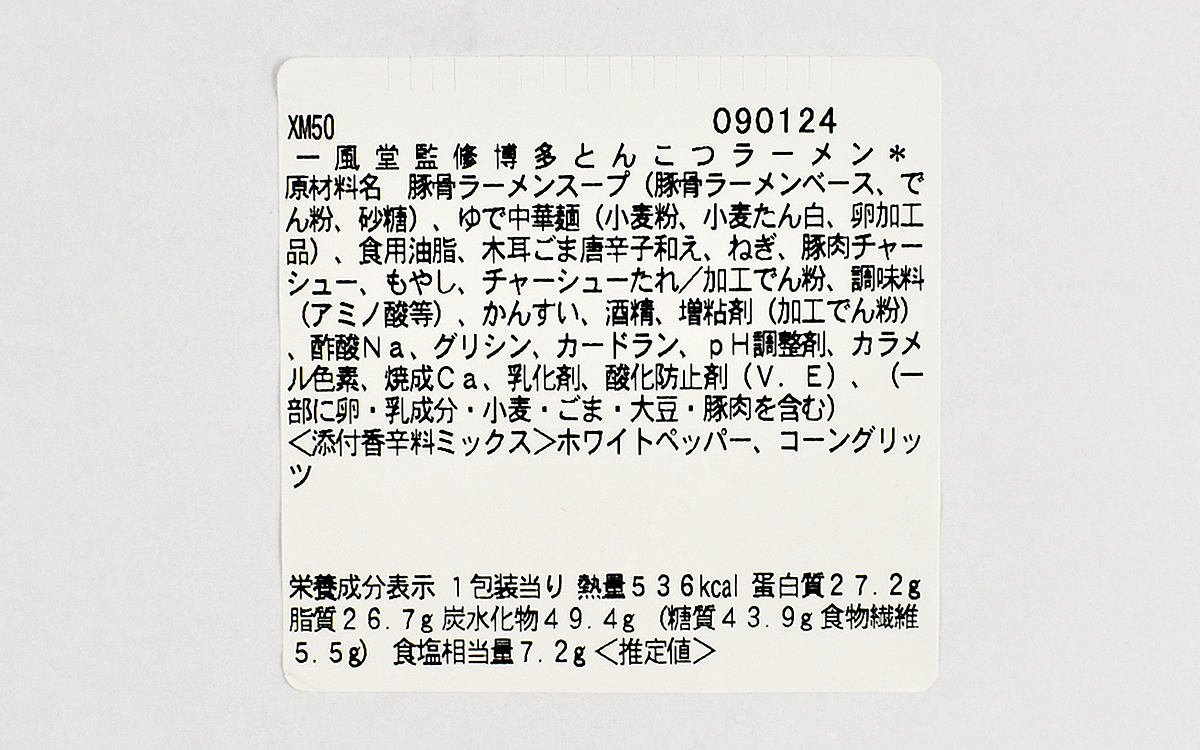 XM50 090124
一風堂監修博多とんこつラーメン＊
原材料名　豚骨ラーメンスープ（豚骨ラーメンベース、で
ん粉、砂糖）、ゆで中華麺（小麦粉、小麦たん白、卵加工
品）、食用油脂、木耳ごま唐辛子和え、ねぎ、豚肉チャー
シュー、もやし、チャーシューたれ／加工でん粉、調味料
（アミノ酸等）、かんすい、酒精、増粘剤（加工でん粉）
、酢酸Ｎａ、グリシン、カードラン、ｐＨ調整剤、カラメ
ル色素、焼成Ｃａ、乳化剤、酸化防止剤（Ｖ．Ｅ）、（一
部に卵・乳成分・小麦・ごま・大豆・豚肉を含む）
＜添付香辛料ミックス＞ホワイトペッパー、コーングリッ
ツ
栄養成分表示 １包装当り 熱量５３６kcal 蛋白質２７.２g
脂質２６.７g 炭水化物４９.４g （糖質４３.９g 食物繊維
５.５g） 食塩相当量７.２g ＜推定値＞